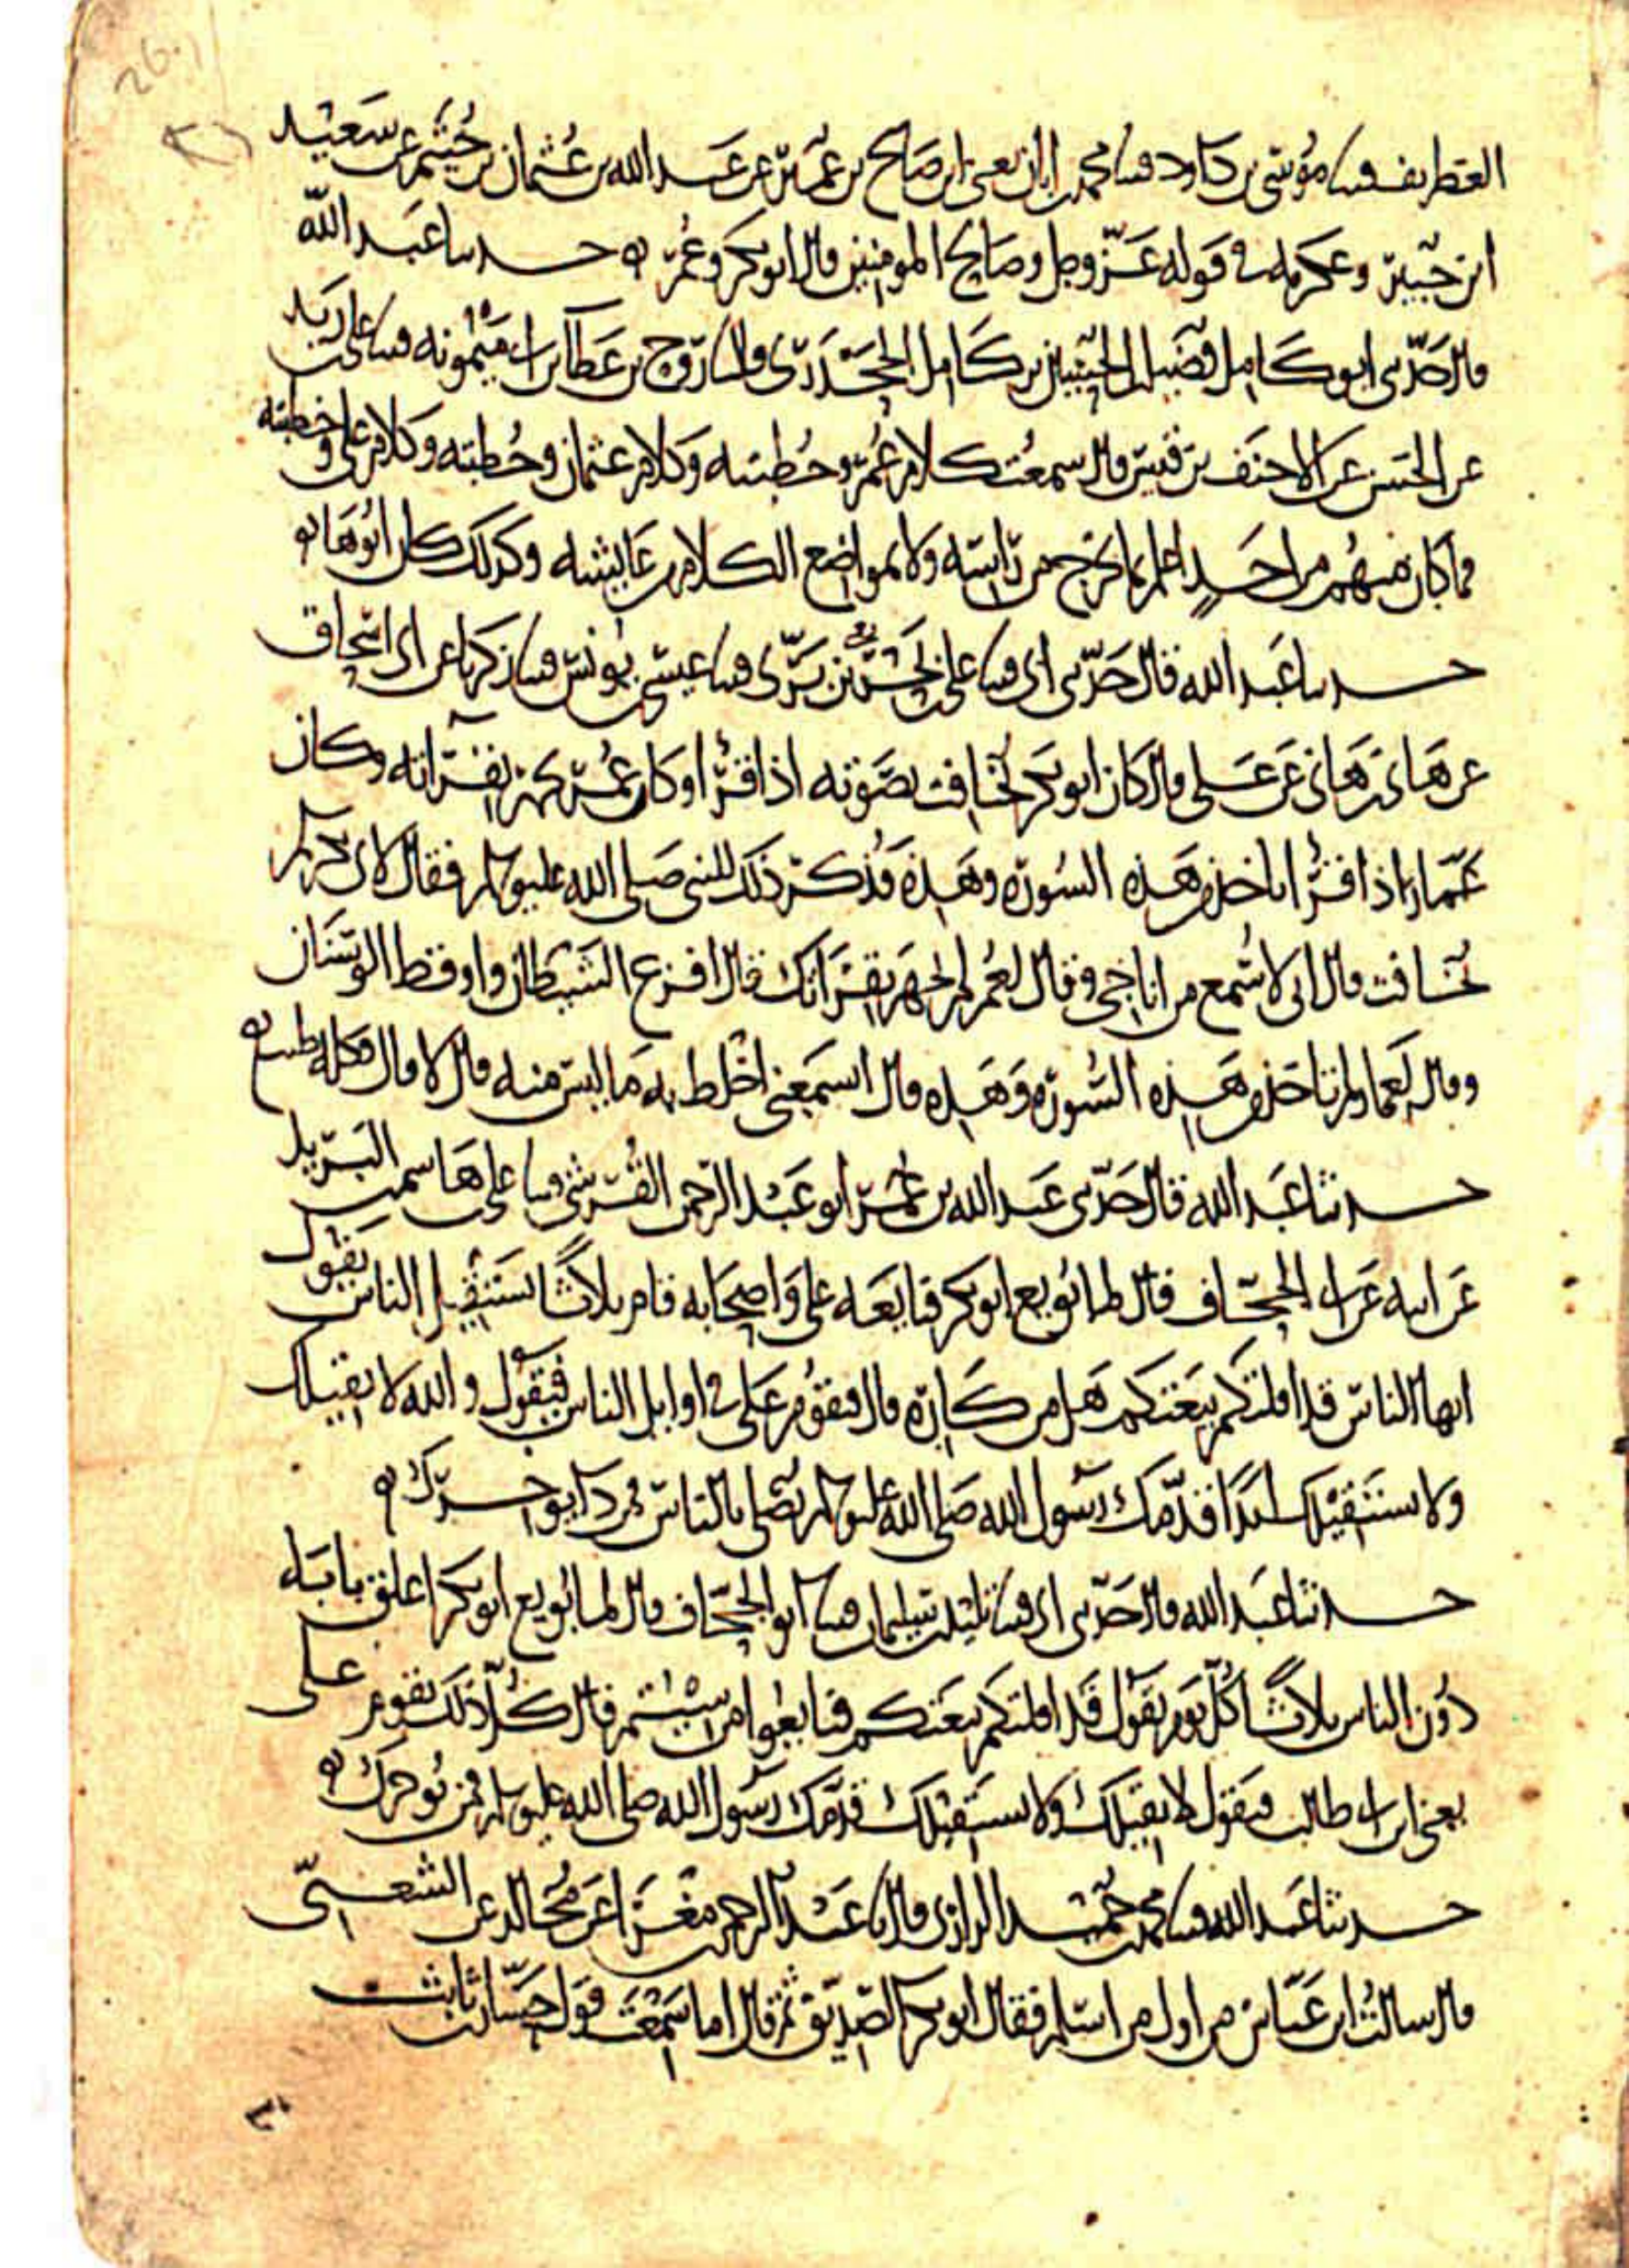 الغطريف قثنا موسى بن داود قثنا محمد بن ابان يعني ابن صالح بن عمير عن عبد الله بن عثمان بن خثيم عن سعيد
ابن جبير وعكرمة في قوله عز وجل وصالح المومنين قال ابو بكر وعمر ه حدثنا عبد الله
قال حدثني ابو كامل فضيل بن الحسين بن كامل الجحدري قال نا روح بن عطا بن ابي ميمونه قثنا علي بن زيد
عن الحسن عن الاحنف بن قيس قال سمعت كلام عمر وخطبته وكلام عثمان وخطبته وكلام علي وخطبته
فما كان منهم من احد اعلم بما يخرج من راسه ولا بمواضع الكلام من عايشه وكذلك كان ابوها ه
حدثنا عبد الله قال حدثني ابي قثنا علي بن بحر بن بري قثنا عيسى بن يونس قثنا زكريا عن ابي اسحاق
عن هاني بن هاني عن علي قال كان ابو بكر يخافت بصوته اذا قرا وكان عمر يجهر بقراته وكان
عمار اذا قرا ياخذ من هذه السورة وهذه فذكر ذلك للنبي صلى الله عليه وسلم فقال لابي بكر لم
تخافت قال اني لاسمع من اناجي وقال لعمر لم تجهر بقراتك قال افزع الشيطان واوقظ الوسنان
وقال لعمار لم تاخذ من هذه السورة وهذه قال اتسمعني اخلط به ما ليس منه قال لا قال فكله طيب ه
حدثنا عبد الله قال حدثني عبد الله بن عمر ابو عبد الرحمن القرشي قثنا علي بن هاشم بن البريد
عن ابيه عن ابي الجحاف قال لما بويع ابو بكر فبايعه علي واصحابه قام ثلاثا يستقيل الناس يقول
ايها الناس قد اقلتكم بيعتكم هل من كاره قال فيقوم علي في اوايل الناس فيقول والله لا نقيلك
ولا نستقيلك ابدا قدمك رسول الله صلى الله عليه وسلم تصلي بالناس فمن ذا يوخرك ه
حدثنا عبد الله قال حدثني ابي قثنا تليد بن سليمان قثنا ابو الجحاف قال لما بويع ابو بكر اغلق بابه
دون الناس ثلاثا كل يوم يقول قد اقلتكم بيعتكم فبايعوا من شيتم قال كل ذلك يقوم علي
يعني ابن ابي طالب فيقول لا نقيلك ولا نستقيلك قدمك رسول الله صلى الله عليه وسلم فمن يوخرك ه
حدثنا عبد الله قثنا محمد بن حميد الرازي قال نا عبد الرحمن بن مغرا عن مجالد عن الشعبي
قال سالت ابن عباس من اول من اسلم فقال ابو بكر الصديق ثم قال اما سمعت قول حسان بن ثابت